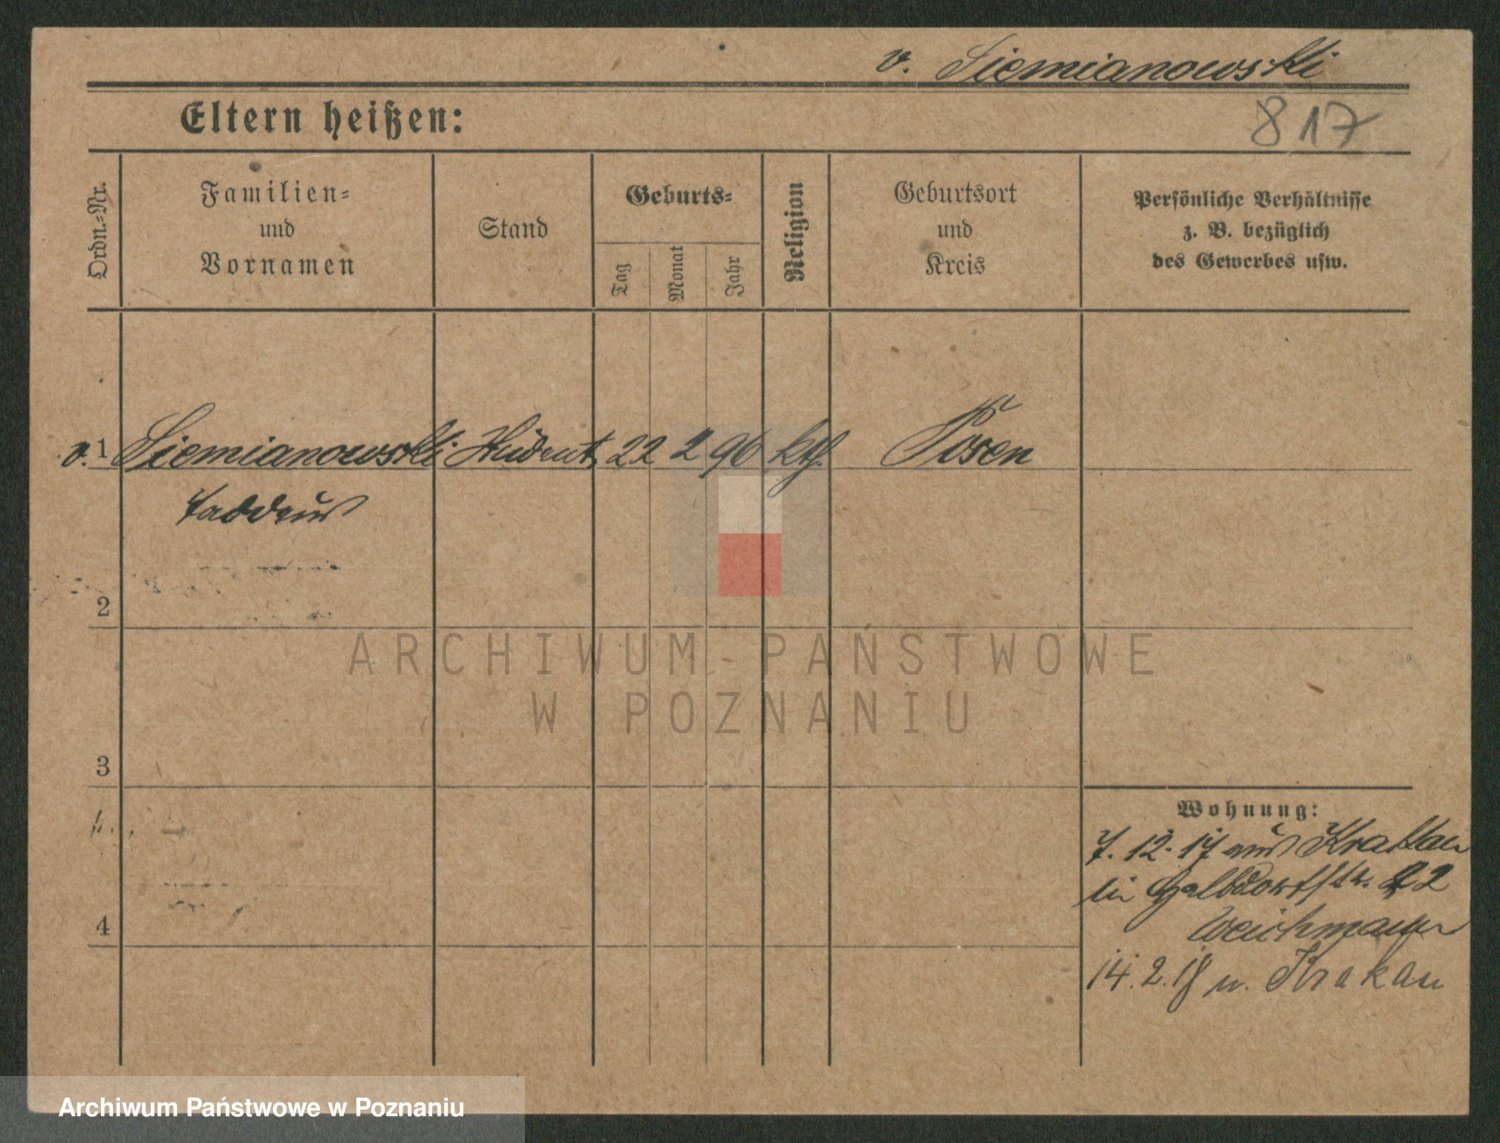 v. Siemianowski
817
Eltern heißen:
Ordn.=Nr.
Familien=
und
Vornamen
Stand
Geburts=
Tag
Monat
Jahr
Religion
Geburtsort
und
Kreis
Persönliche Verhältnisse
z. B. bezüglich
des Gewerbes usw.
v. 1 Siemianowski Student 22 2 96 kth. Posen
Taddeus
2
3
4
Wohnung:
7. 12. 17 aus Krakau
in Halbdorfstr. 22
Weichmayer
14. 2. 18 n. Krakau
ARCHIWUM PAŃSTWOWE
W POZNANIU
Archiwum Państwowe w Poznaniu